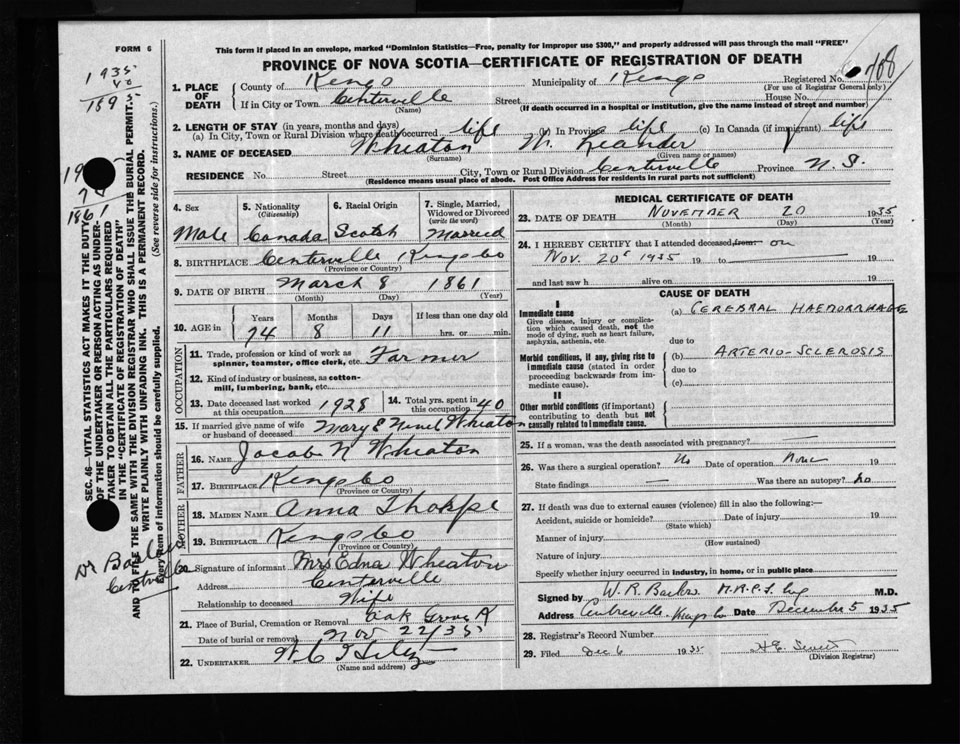 FORM 6
This form if placed in an envelope, marked "Dominion Statistics—Free, penalty for improper use $300," and properly addressed will pass through the mail "FREE"
PROVINCE OF NOVA SCOTIA—CERTIFICATE OF REGISTRATION OF DEATH
1. PLACE OF DEATH
County of Kings Municipality of Kings Registered No. 708
(For use of Registrar General only)
If in City or Town Centerville Street House No.
(Name) (If death occurred in a hospital or institution, give the name instead of street and number)
2. LENGTH OF STAY (in years, months and days)
(a) In City, Town or Rural Division where death occurred life (b) In Province life (c) In Canada (if immigrant) life
3. NAME OF DECEASED Wheaton W. Leander
(Surname) (Given name or names)
RESIDENCE No. Street City, Town or Rural Division Centerville Province N.S.
(Residence means usual place of abode. Post Office Address for residents in rural parts not sufficient)
4. Sex 5. Nationality (Citizenship) 6. Racial Origin 7. Single, Married, Widowed or Divorced (write the word)
Male Canada Scotch Married
8. BIRTHPLACE Centerville Kings Co
(Province or Country)
9. DATE OF BIRTH March 8 1861
(Month) (Day) (Year)
10. AGE in Years Months Days If less than one day old
74 8 11 hrs. or min.
OCCUPATION
11. Trade, profession or kind of work as spinner, teamster, office clerk, etc. Farmer
12. Kind of industry or business, as cotton-mill, lumbering, bank, etc.
13. Date deceased last worked at this occupation 1928
14. Total yrs. spent in this occupation 40
15. If married give name of wife or husband of deceased Mary E Wheaton
FATHER
16. Name Jacob N Wheaton
17. Birthplace Kings Co
(Province or Country)
MOTHER
18. Maiden Name Anna Thorpe
19. Birthplace Kings Co
(Province or Country)
20. Signature of informant Mrs Edna Wheaton
Address Centerville
Relationship to deceased Wife
21. Place of Burial, Cremation or Removal Oak Grove K
Date of burial or removal Nov 22/35
22. UNDERTAKER
(Name and address)
MEDICAL CERTIFICATE OF DEATH
23. DATE OF DEATH NOVEMBER 20 1935
(Month) (Day) (Year)
24. I HEREBY CERTIFY that I attended deceased from: on
Nov. 20 1935 19 to 19
and last saw h alive on 19
CAUSE OF DEATH
I
Immediate cause
Give disease, injury or complication which caused death, not the mode of dying, such as heart failure, asphyxia, asthenia, etc.
(a) CEREBRAL HAEMORRHAGE
due to
Morbid conditions, if any, giving rise to immediate cause (stated in order proceeding backwards from immediate cause).
(b) ARTERIO-SCLEROSIS
due to
(c)
II
Other morbid conditions (if important) contributing to death but not causally related to immediate cause.
25. If a woman, was the death associated with pregnancy?
26. Was there a surgical operation? No Date of operation None 19
State findings Was there an autopsy? No
27. If death was due to external causes (violence) fill in also the following:—
Accident, suicide or homicide? Date of injury 19
(State which)
Manner of injury
(How sustained)
Nature of injury
Specify whether injury occurred in industry, in home, or in public place
Signed by W. R. M.D.
Address Centreville, Kings Co Date December 5 1935
28. Registrar's Record Number
29. Filed Dec 6 1935
(Division Registrar)
1935
1895
1861
SEC. 46—VITAL STATISTICS ACT MAKES IT THE DUTY
OF THE UNDERTAKER OR PERSON ACTING AS UNDER-
TAKER TO OBTAIN ALL THE PARTICULARS REQUIRED
IN THE "CERTIFICATE OF REGISTRATION OF DEATH"
AND TO FILE THE SAME WITH THE DIVISION REGISTRAR WHO SHALL ISSUE THE BURIAL PERMIT.
WRITE PLAINLY WITH UNFADING INK. THIS IS A PERMANENT RECORD.
Every item of information should be carefully supplied. (See reverse side for instructions.)
Dr
Centerville